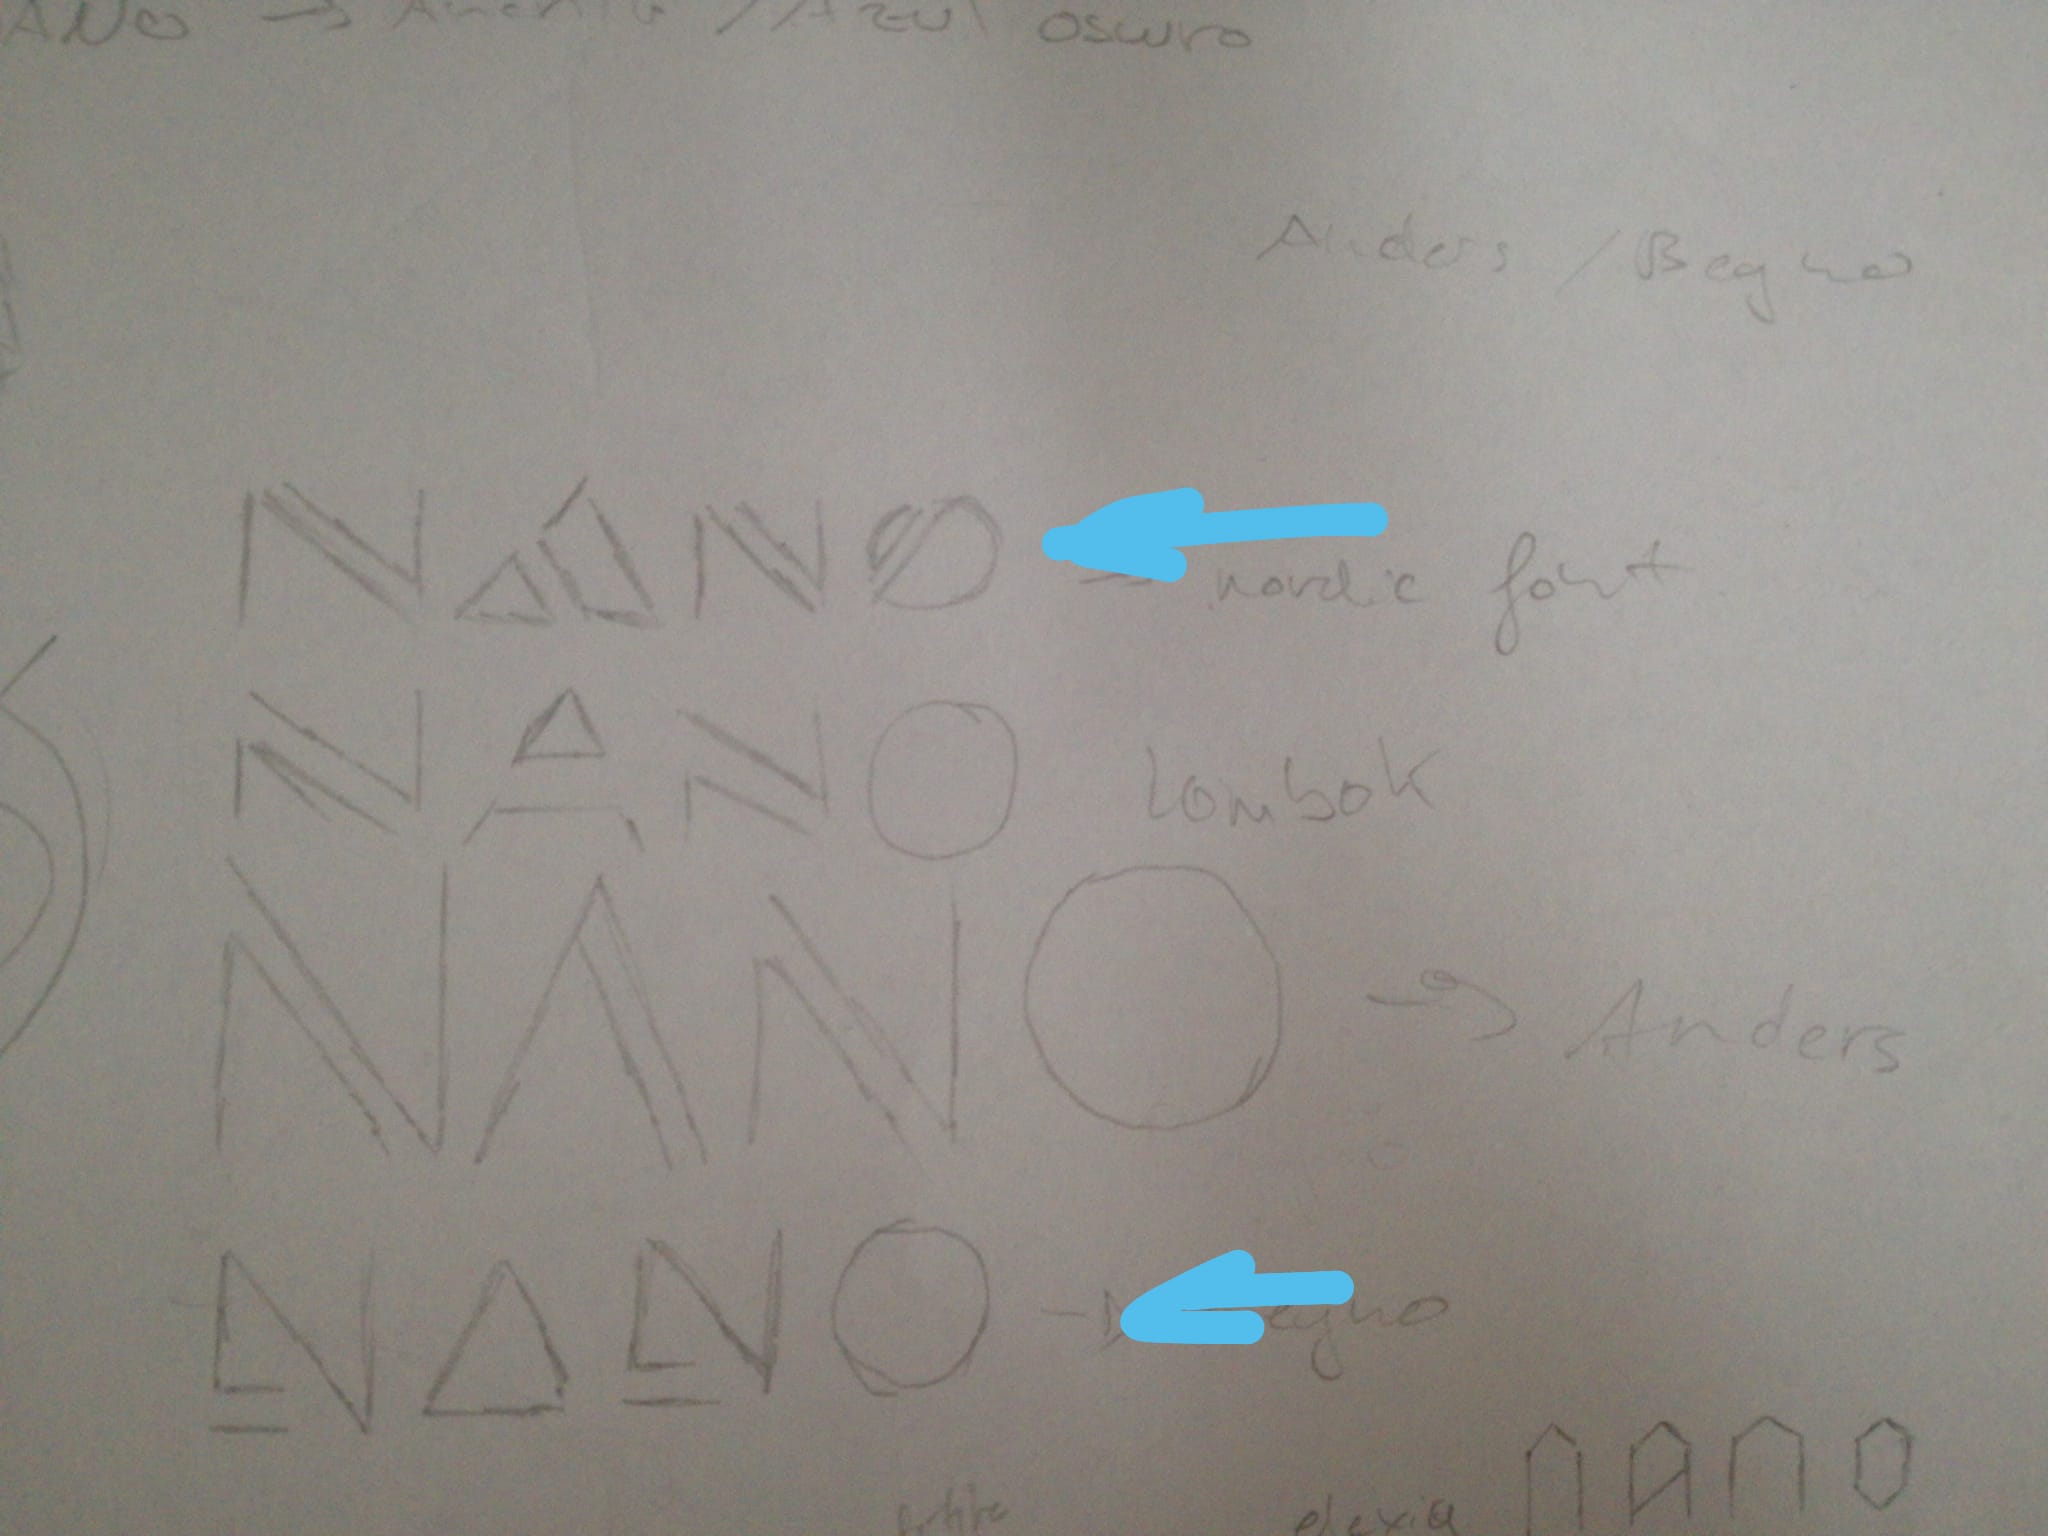 ANO → / Azul oscuro
Anders / Begno
NANO → nordic font
NANO Lombok
NANO → Anders
NANO →
elexia NANO